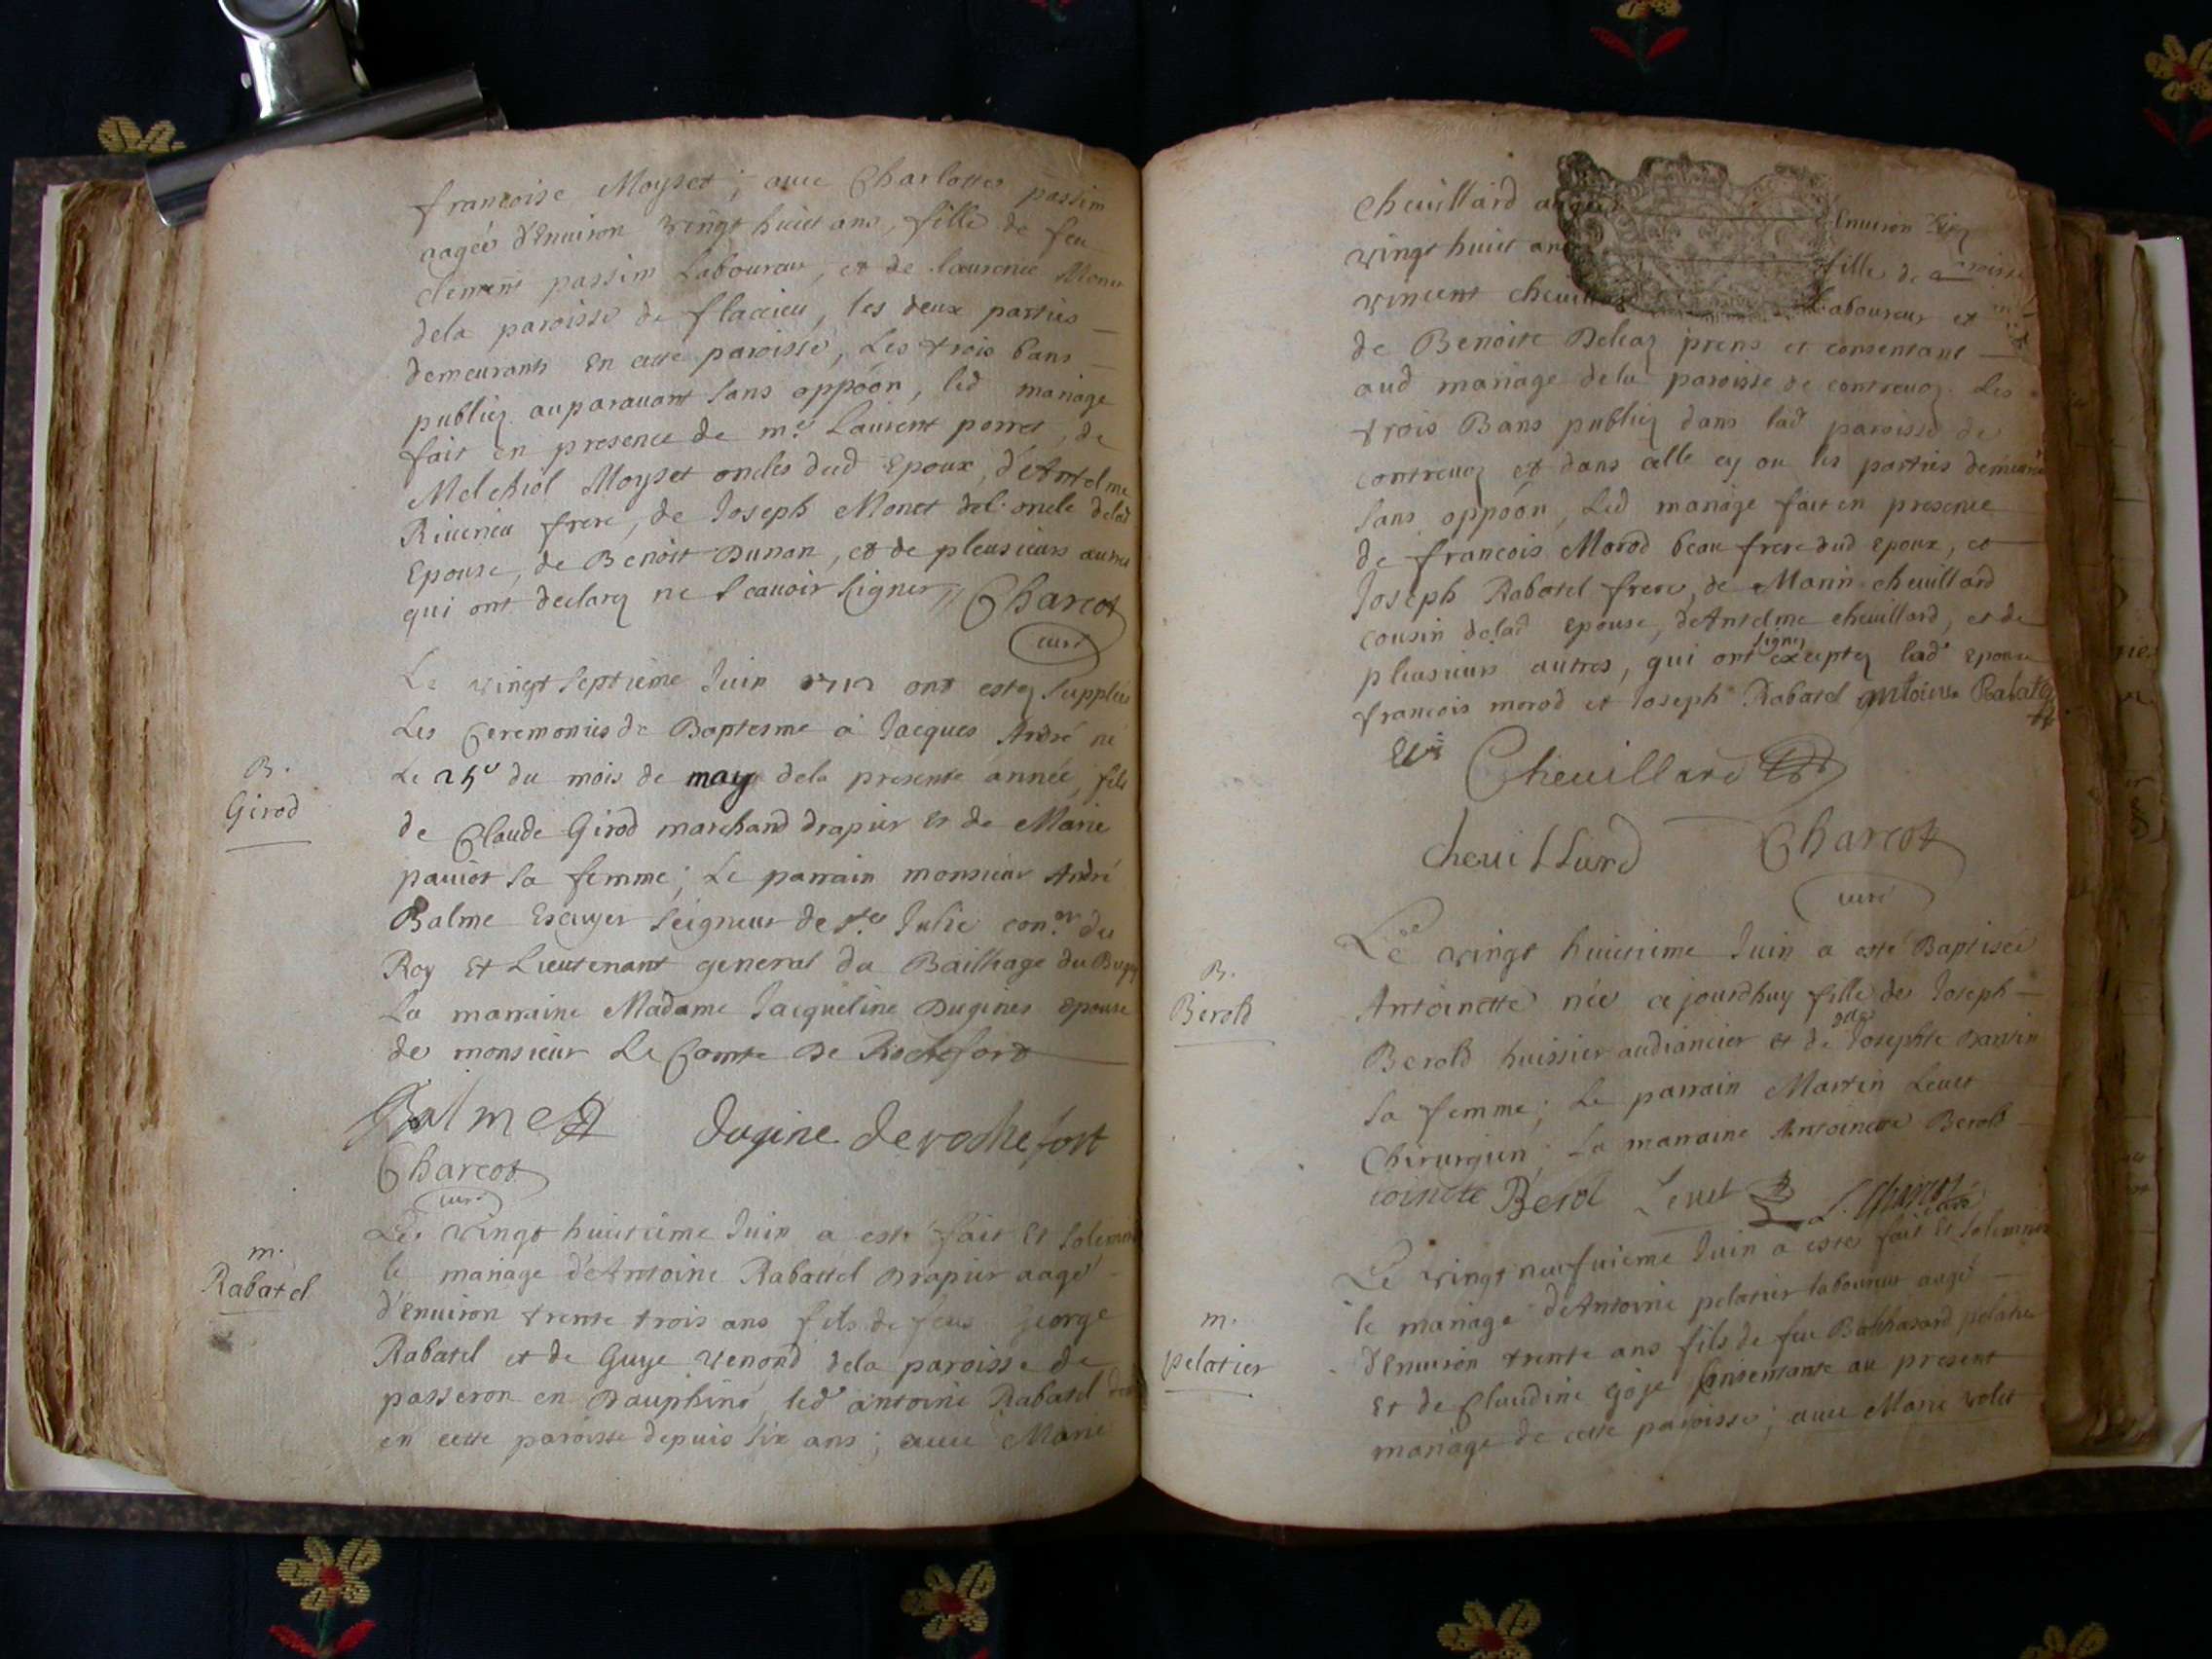 francoise Moyset; auec Charlotte passim
aagée d'Enuiron vingt huict ans, fille de feu
clement passim Laboureur, et de laurence Monet
dela paroisse de flaxieu, les deux parties
demeurants En cette paroisse, Les trois bans
publiez auparauant sans oppoôn, led mariage
fait en presence de m.e Laurent perret, de
Melchiol Moyset oncles dud Epoux, d'Antelme
Riuerieu frere, de Joseph Monet oncle delad
Epouse, de Benoit Dunan, et de pleusieurs autres
qui ont declarez ne scauoir signer // Charcot
curé
Le vingt septieme Juin 1712 ont estez supplées
Les Ceremonies de Baptesme à Jacques André né
B.
Girod
Le 25e du mois de may dela presente année, fils
de Claude Girod marchand drapier et de Marie
pauiot sa femme; Le parrain monsieur André
Balme Escuyer seigneur de Ste Julie con.er du
Roy Et Lieutenant general du Bailliage du Bugey
La marraine Madame Jacqueline Dugines epouse
de monsieur Le Comte De Rochefort
Balme Dugine de rochefort
Charcot
curé
m.
Rabatel
Le vingt huictieme Juin a esté fait Et solemnisé
le mariage d'Antoine Rabattel Drapier aagé
d'Enuiron trente trois ans fils de feus George
Rabatel et de Guye venond dela paroisse de
passeron en Dauphiné, led antoine Rabatel
en cette paroisse depuis six ans; auec Marie
cheuillard d'Enuiron
vingt huict ans fille de
vincent cheuillard Laboureur et
de Benoite Deleaz prens et consentant
aud mariage dela paroisse de contreuoz. Les
trois Bans publiez dans lad paroisse de
contreuoz et dans celle cy ou les parties demeurent
sans oppoôn, Led mariage fait en presence
de francois Morod beau frere dud epoux, et
Joseph Rabatel frere, de Marin cheuillard
cousin delad epouse, d'Antelme cheuillard, et de
pleusieurs autres, qui ont signez exceptez lad epouse
francois morod et Joseph Rabatel antoine Rabatel
Cheuillard
cheuillard Charcot
curé
B.
Berold
Le vingt huictieme Juin a esté Baptisée
Antoinette née ce jourdhuy fille de Joseph
Berold huissier audiancier et de dlle Josephte
sa femme; Le parrain Martin Leuet
Chirurgien; La marraine Antoinette Berold
toinette Berol Leuet L. Charcot curé
m.
pelatier
Le vingt neufuieme Juin a esté fait Et solemnisé
le mariage d'Antoine pelatier laboureur aagé
d'Enuiron trente ans fils de feu Balthazard pelatier
Et de Claudine goje Consentante au present
mariage de cette paroisse; auec Marie volet